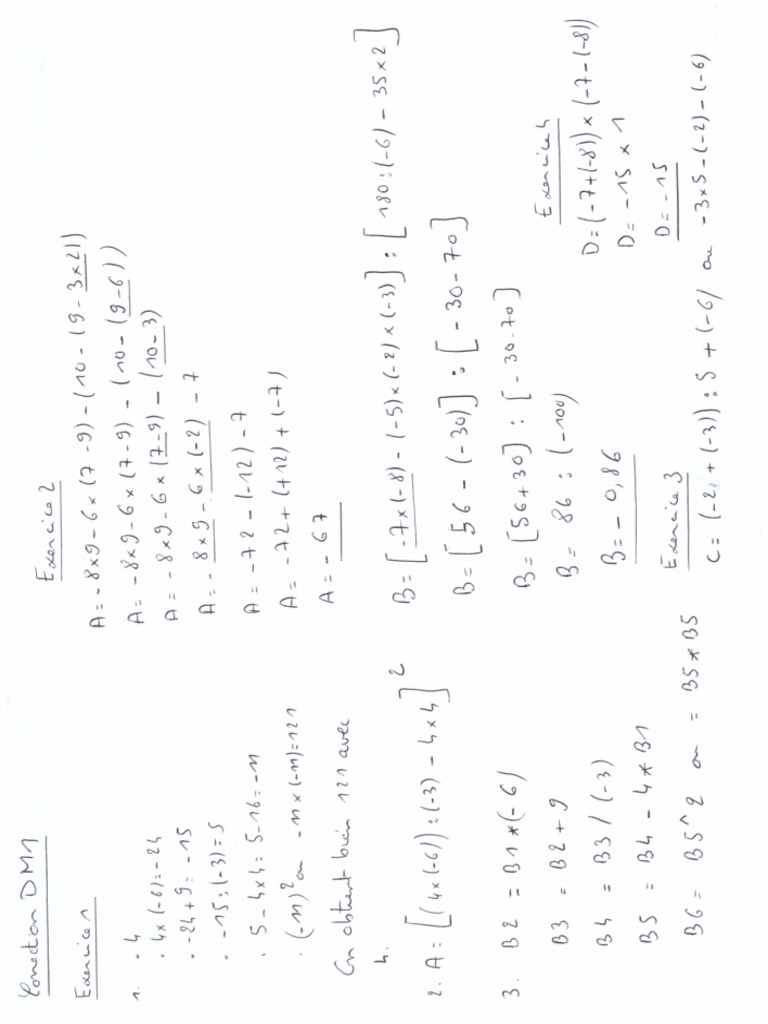 Correction DM1
Exercice 1
1. . 4
. 4x(-6)=-24
. -24+9=-15
. -15:(-3)=5
. 5-4x4=5-16=-11
. (-11)² ou -11x(-11)=121
On obtient bien 121 avec
4.
2. A=[(4x(-6)):(-3)-4x4]²
3. B2 = B1*(-6)
B3 = B2+9
B4 = B3/(-3)
B5 = B4-4*B1
B6= B5^2 ou = B5*B5
Exercice 2
A=-8x9-6x(7-9)-(10-(9-3x2))
A=-8x9-6x(7-9)-(10-(9-6))
A=-8x9-6x(7-9)-(10-3)
A=-8x9-6x(-2)-7
A=-72-(-12)-7
A=-72+(+12)+(-7)
A=-67
B=[-7x(-8)-(-5)x(-2)x(-3)]:[180:(-6)-35x2]
B=[56-(-30)]:[-30-70]
B=[56+30]:[-30-70]
B=86:(-100)
B=-0,86
Exercice 3
C=(-21+(-3)):5+(-6) ou -3x5-(-2)-(-6)
Exercice 4
D=(-7+(-8))x(-7-(-8))
D=-15x1
D=-15